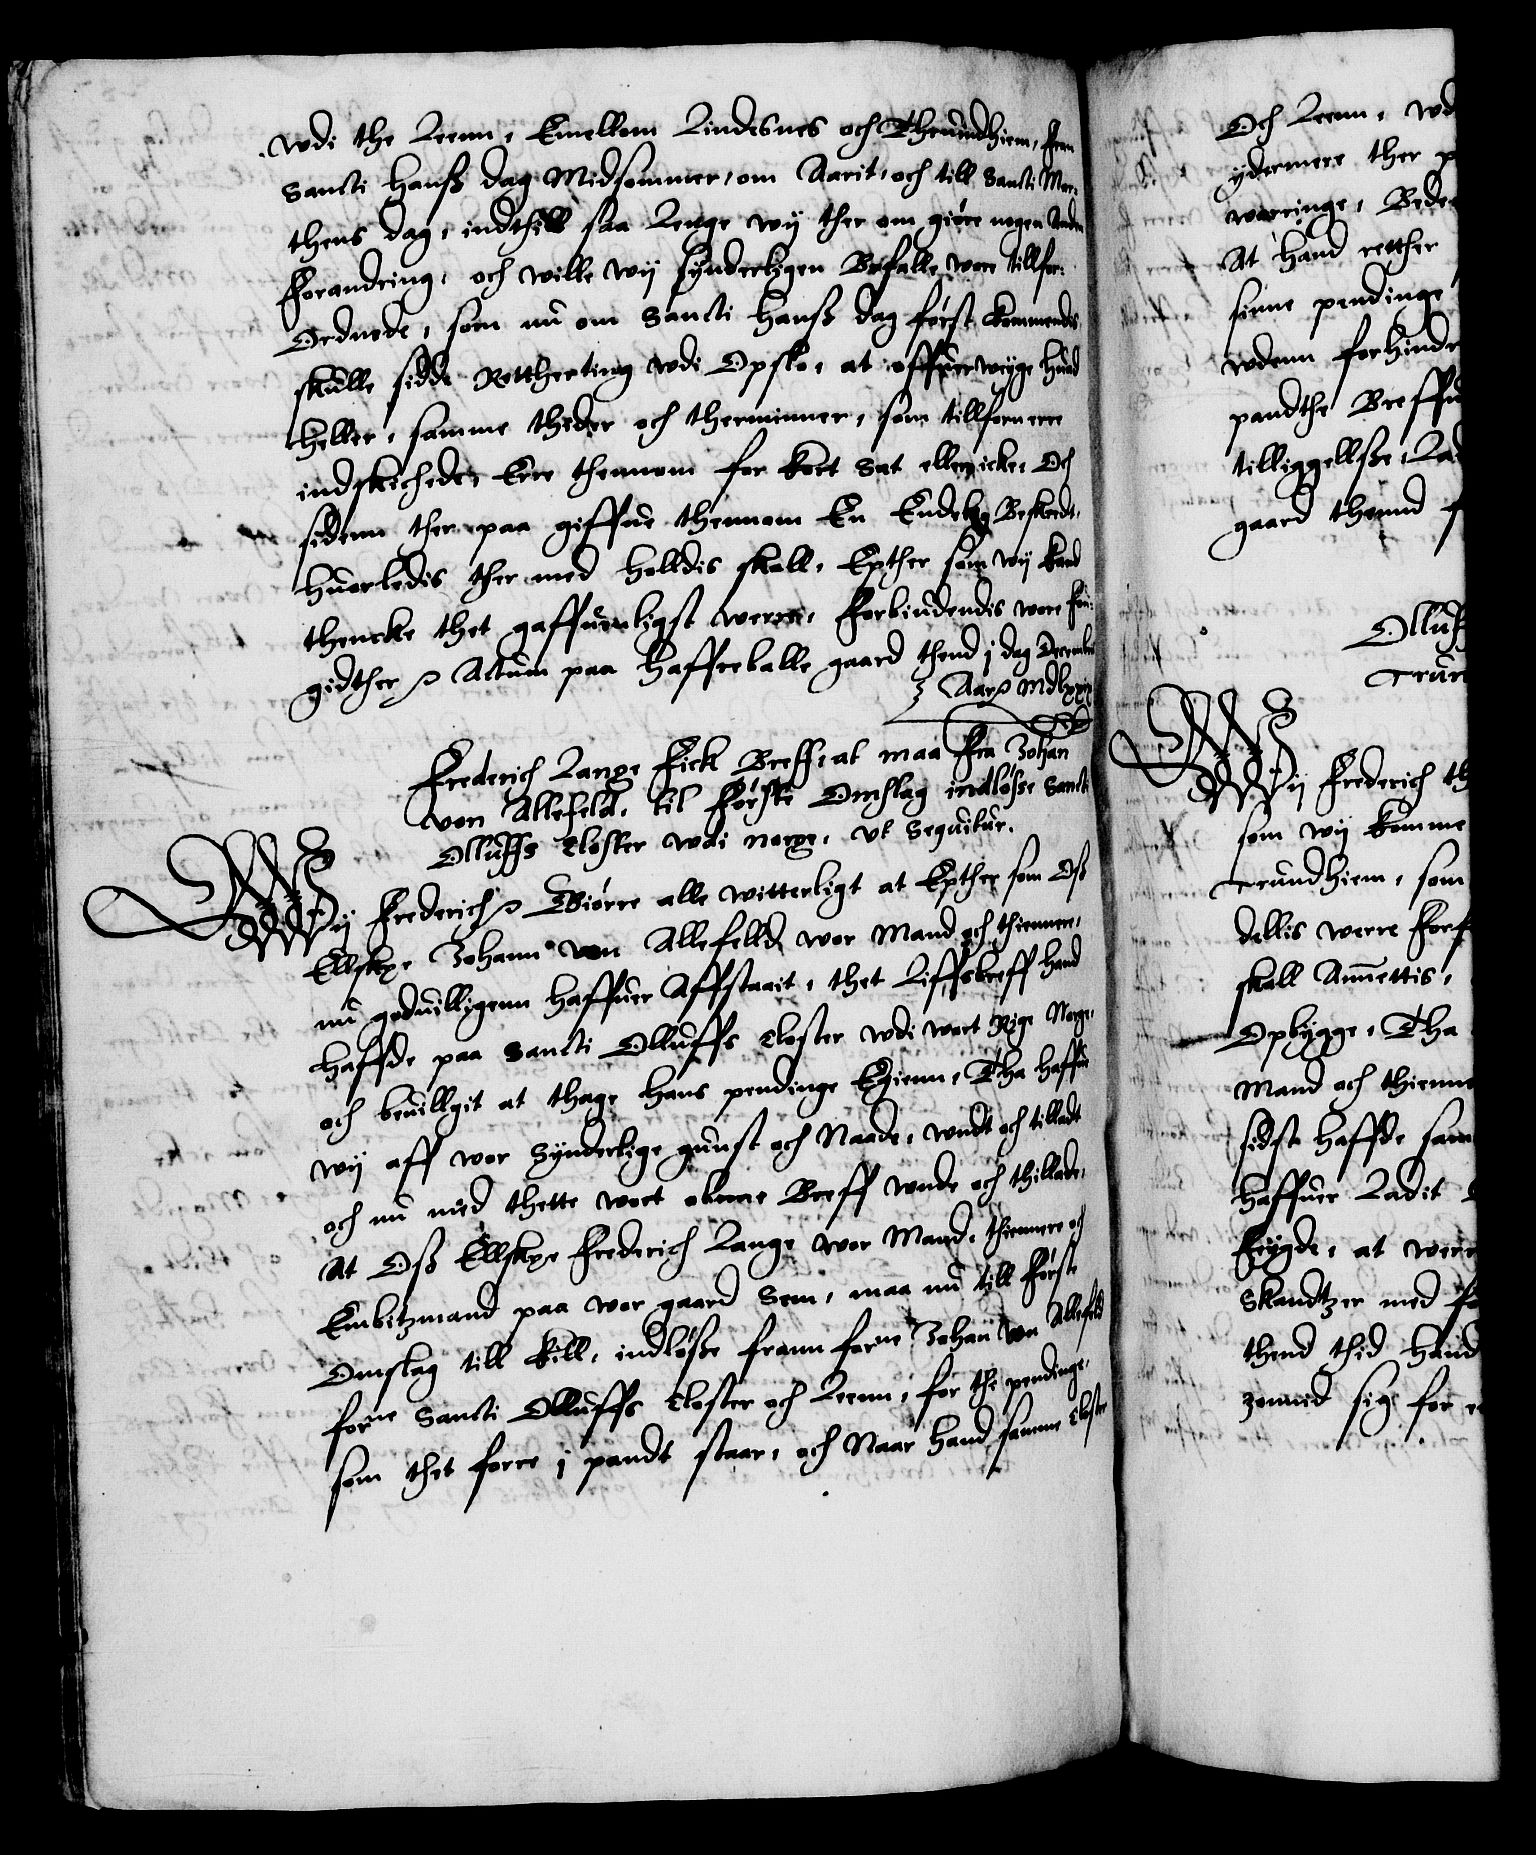 wdi the Leenn, Emellom Lindesnes och Thrundhiem, fran
Sancti Hanß dag Midsommer, om Aarit, och till Sancti Mor-
thens dag, indthill saa Lenge wy ther om giöre nogen Anden
Forandring, och wille wy synderligen Befalle wore tillfor-
Ordnede, som nu om Sancti Hanß dag først kommendis
skulle sidde Rettherting wdi Opslo, at offuerweyge huad
heller, samme theder och therminner, som tillfornerre
indskickede, Erre thennom for kort Sat eller icke, Och
sidenn ther paa giffue thennom En Endelig Beskedt,
huorledis ther med holldis skall, Epther som wy kand
thencke thet gaffuenligst werre, Forbiudendis wore Fou-
gidther Actum paa Haffreballe gaard thend j dag Decembris
Aar Mdlxxij
Frederich Lange Fick Breff, at maa Fra Johan
von Allefeld, til Første Omslag indløsse Sancti
Olluffs Closter wdi Norge, vt Sequitur.
Wy Frederich Giørre alle witterligt at Epther som Oß
Ellskge Johann von Allefelld wor Mand och thiennere,
nu goduilligenn haffuer Affstaait, thet Liffsbreff hand
haffde paa Sancti Olluffs Closter wdi wort Rige Norge,
och beuillgit at thage hans pendinge Egienn, Tha haffue
wy aff wor Synderlige gunst och Naade, wndt och tilladt
och nu med thette wort obne Breff wnde och thillade,
At Oß Ellskge Frederich Lange wor Mand, thiennere och
Embitzmand paa wor gaard Sem, maa nu till Første
Omslag till Kill, indløsße frann forne Johan von Allefeld
forne Sancti Olluffs Closter och Leenn, for the pendinge,
som thet forre j pandt staar, och Naar hand samme Closter
Och Leenn, wd
ydermere ther p
warringe, Bede
At hand retther
sinne pendinge
wdenn forhindr
pandthe Breffu
tilliggellsße, Lad
gaard thennd
Olluff
Trun
Wy Frederich th
som wy komme
Trundhiem, som
dellis werre Forf
skall Anuettis,
Opbygge, Tha
Mand och thienne
sidste haffde sam
haffuer Ladit
Frygde, at were
Skandtzer med fo
thend thid hand